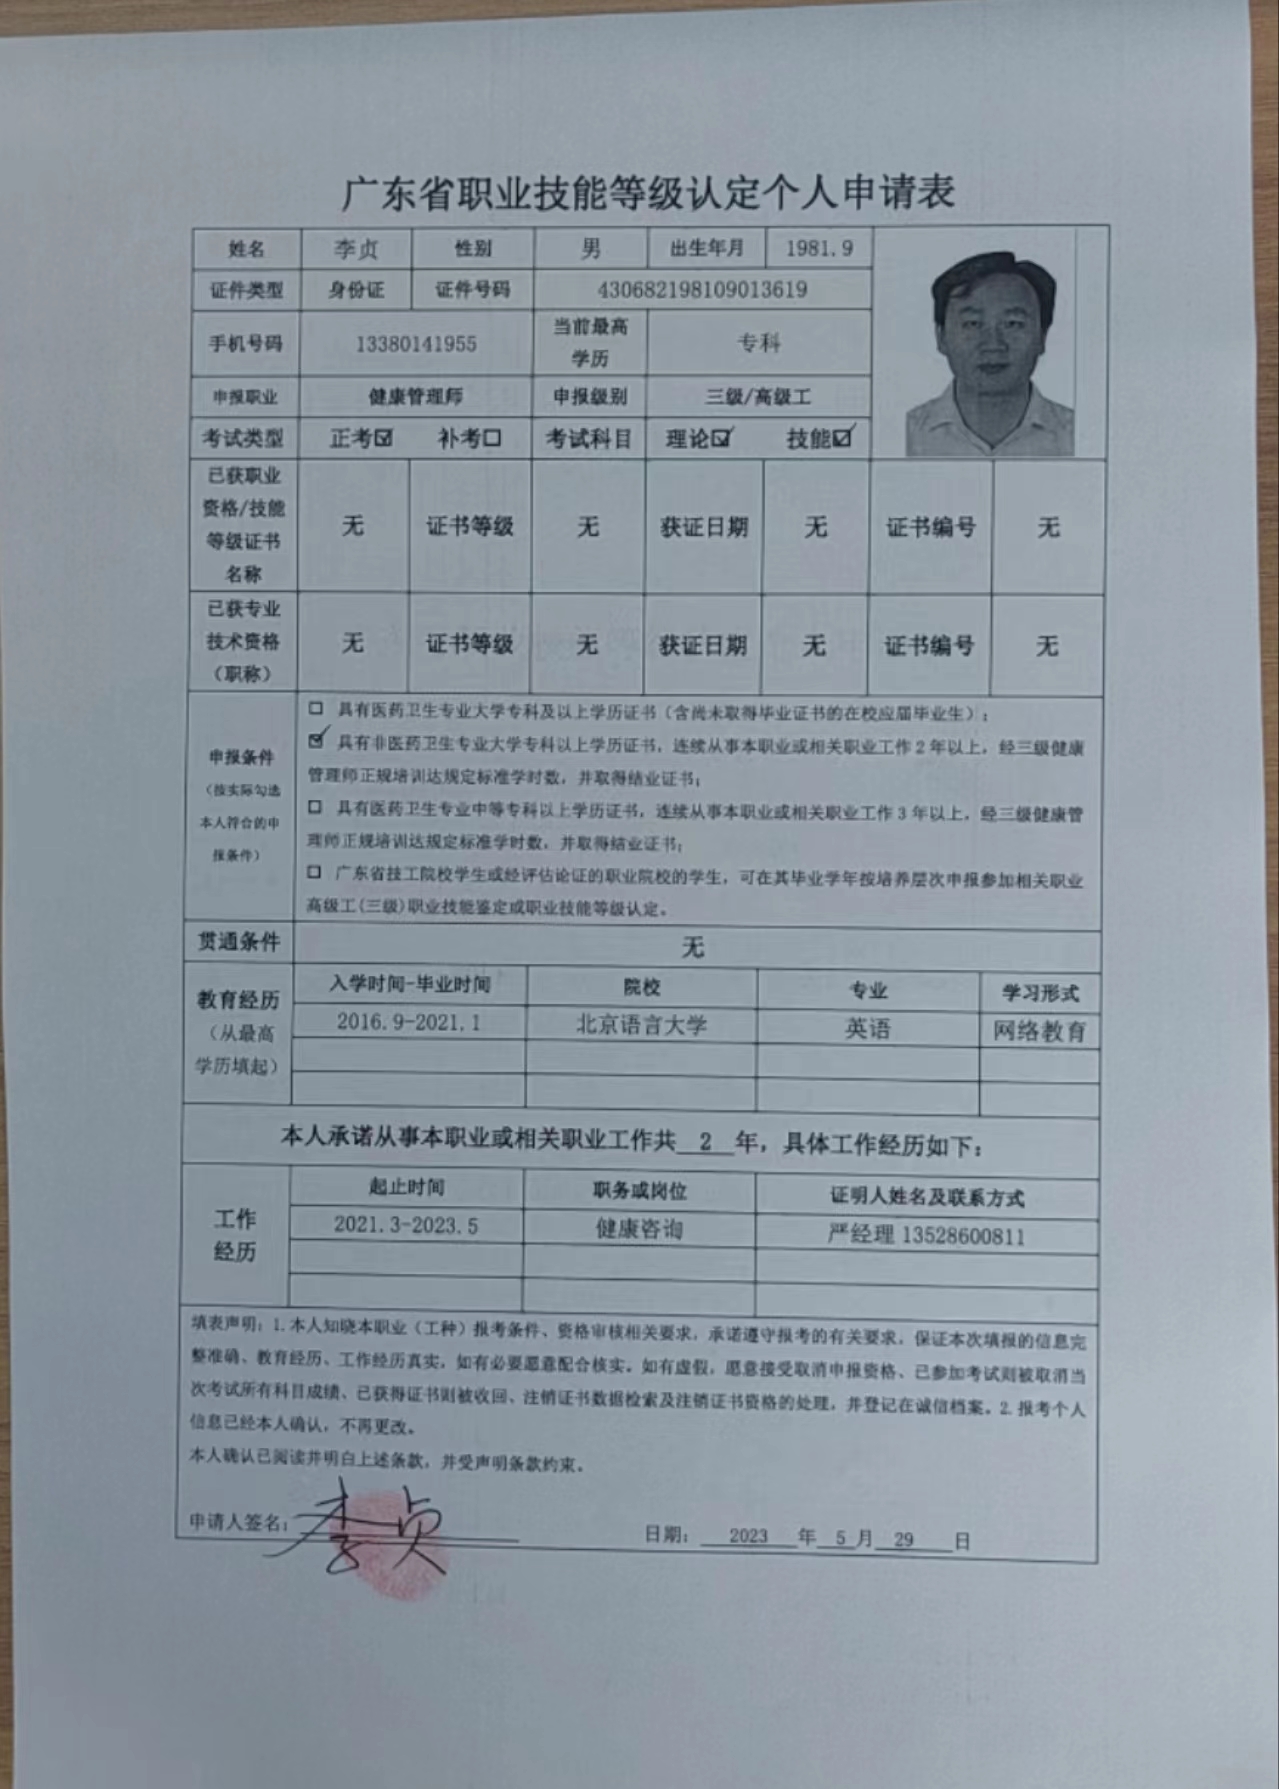 广东省职业技能等级认定个人申请表
姓名 李贞 性别 男 出生年月 1981.9
证件类型 身份证 证件号码 430682198109013619
手机号码 13380141955 当前最高学历 专科
申报职业 健康管理师 申报级别 三级/高级工
考试类型 正考☑ 补考☐ 考试科目 理论☑ 技能☑
已获职业资格/技能等级证书名称 无 证书等级 无 获证日期 无 证书编号 无
已获专业技术资格（职称） 无 证书等级 无 获证日期 无 证书编号 无
申报条件（按实际勾选本人符合的申报条件）
☐ 具有医药卫生专业大学专科及以上学历证书（含尚未取得毕业证书的在校应届毕业生）；
☑ 具有非医药卫生专业大学专科以上学历证书，连续从事本职业或相关职业工作2年以上，经三级健康
管理师正规培训达规定标准学时数，并取得结业证书；
☐ 具有医药卫生专业中等专科以上学历证书，连续从事本职业或相关职业工作3年以上，经三级健康管
理师正规培训达规定标准学时数，并取得结业证书；
☐ 广东省技工院校学生或经评估论证的职业院校的学生，可在其毕业学年按培养层次申报参加相关职业
高级工(三级)职业技能鉴定或职业技能等级认定。
贯通条件 无
教育经历（从最高学历填起）
入学时间-毕业时间 院校 专业 学习形式
2016.9-2021.1 北京语言大学 英语 网络教育
本人承诺从事本职业或相关职业工作共 2 年，具体工作经历如下：
工作经历
起止时间 职务或岗位 证明人姓名及联系方式
2021.3-2023.5 健康咨询 严经理 13528600811
填表声明：1.本人知晓本职业（工种）报考条件、资格审核相关要求，承诺遵守报考的有关要求，保证本次填报的信息完
整准确、教育经历、工作经历真实，如有必要愿意配合核实。如有虚假，愿意接受取消申报资格、已参加考试则被取消当
次考试所有科目成绩、已获得证书则被收回、注销证书数据检索及注销证书资格的处理，并登记在诚信档案。2.报考个人
信息已经本人确认，不再更改。
本人确认已阅读并明白上述条款，并受声明条款约束。
申请人签名：李贞 日期： 2023 年 5 月 29 日